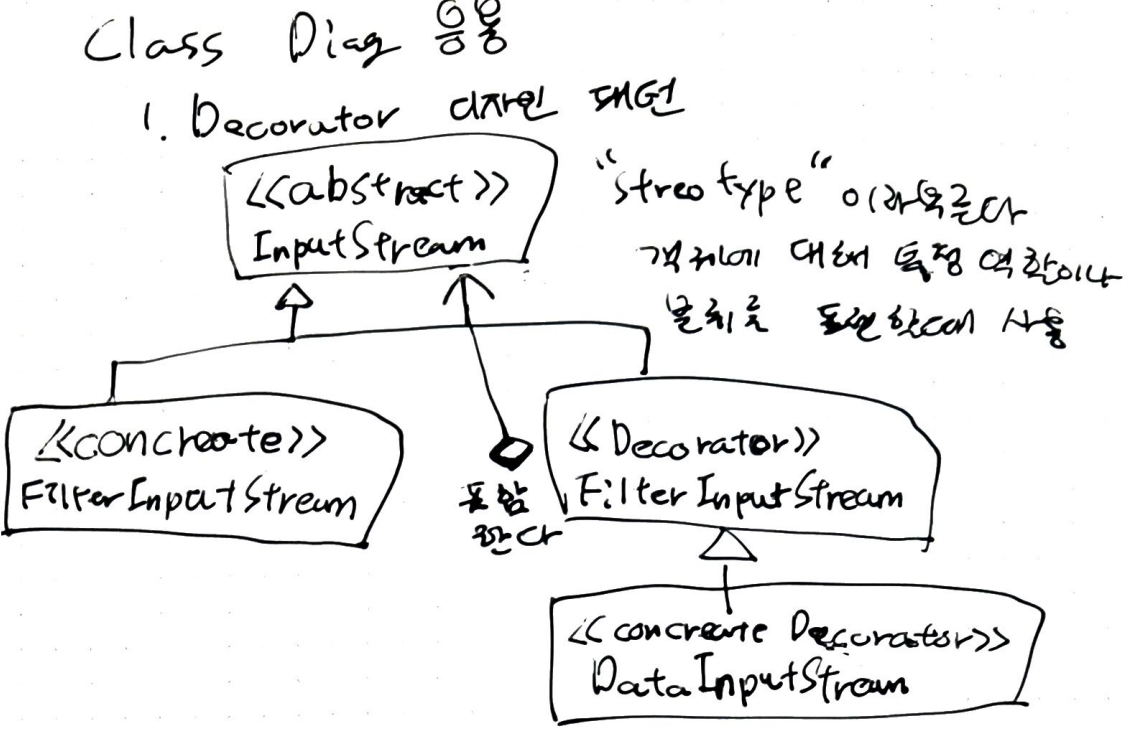 Class Diag 응용
1. Decorator 디자인 패턴
<<abstract>>
InputStream
"streo type" 이라 부른다
객체에 대해 특정 역할이나
분류를 표현할때 사용
<<concreate>>
FilterInputStream
포함
한다
<<Decorator>>
FilterInputStream
<<concreate Decorator>>
DataInputStream